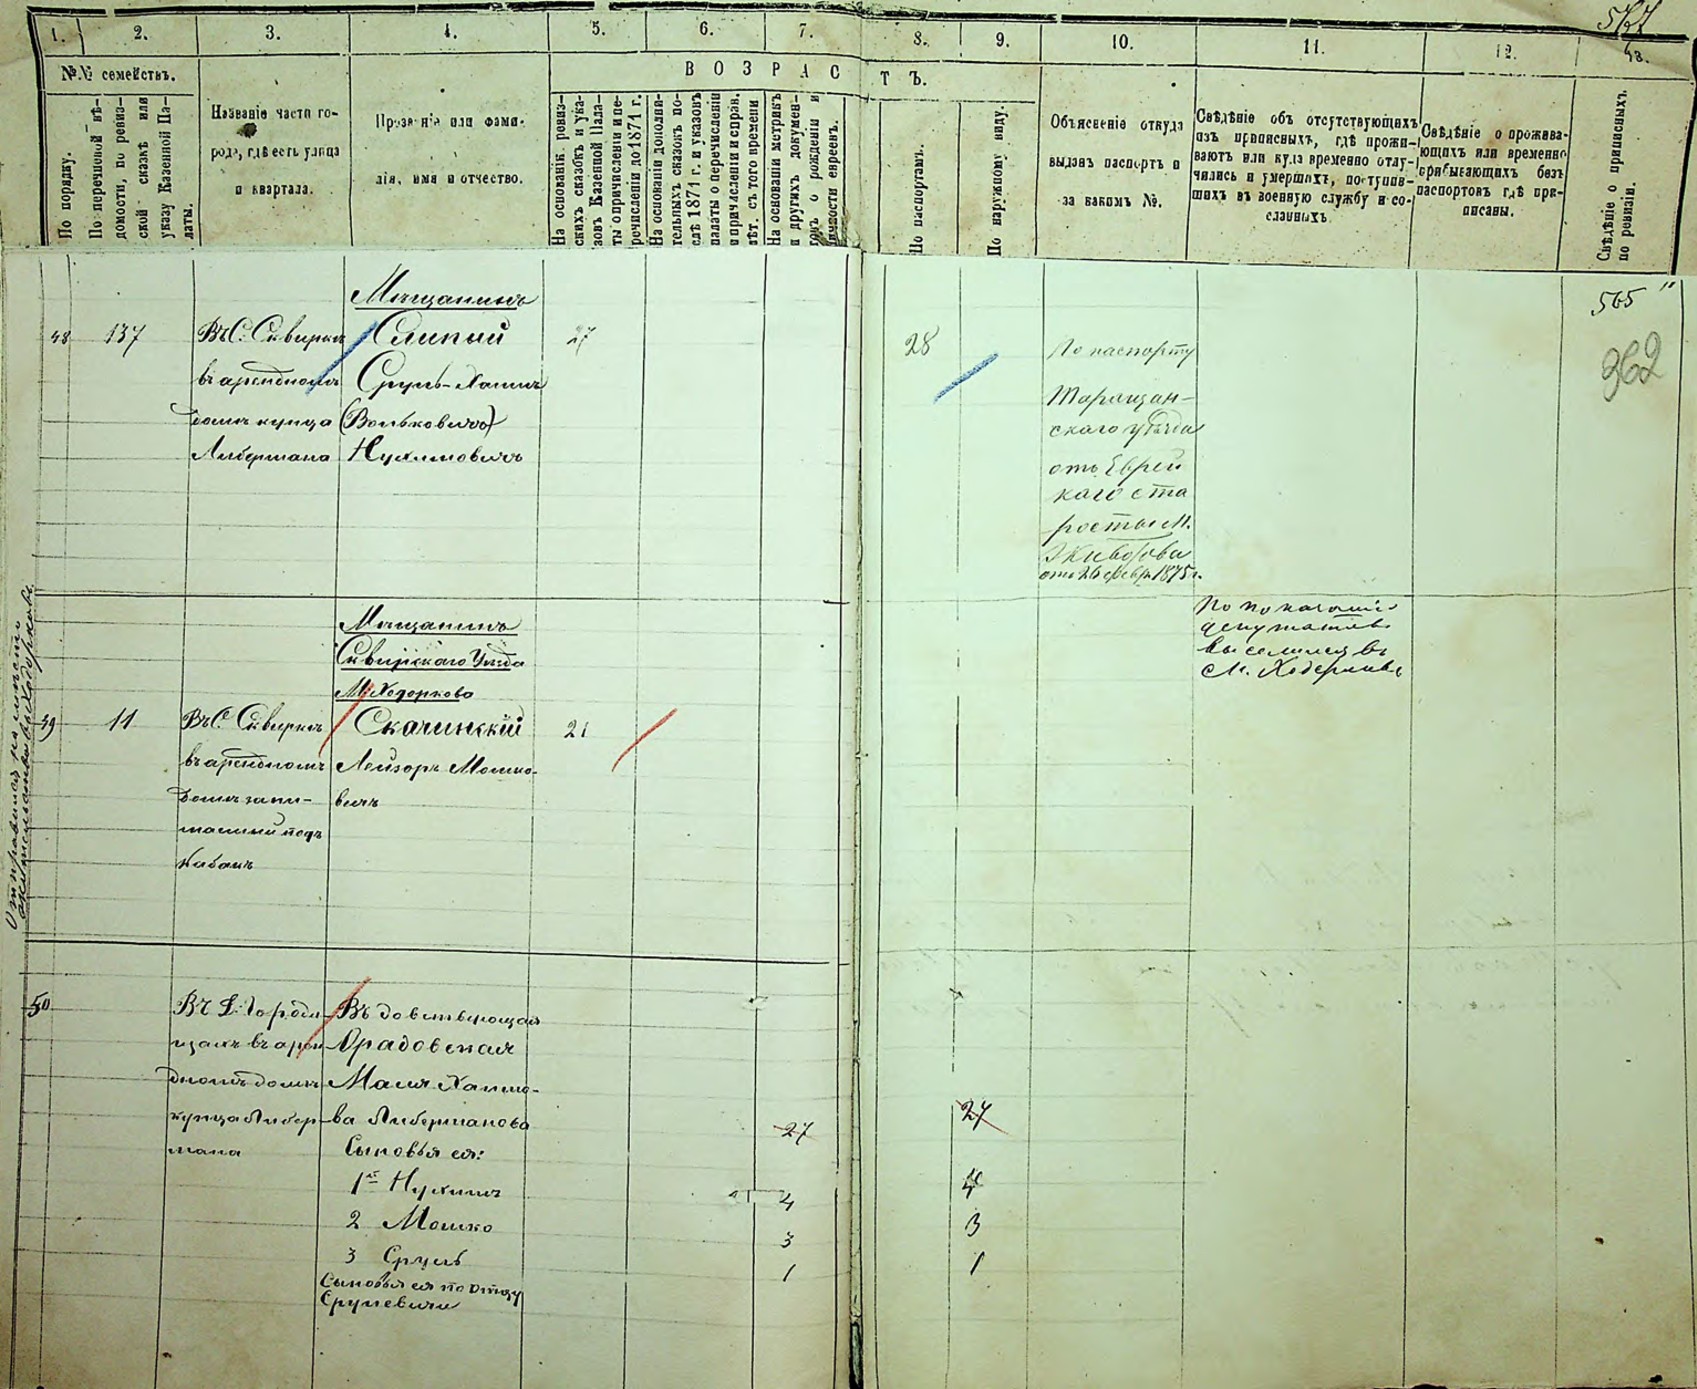 567
1. 2. 3. 4. 5. 6. 7. 8. 9. 10. 11. 12. 13.
№№ семействъ.
ВОЗРАСТЪ.
По порядку.
По перечневой вѣдомости, по ревизской сказкѣ или указу Казенной Палаты.
Названіе части города, гдѣ есть улица и квартала.
Прозваніе или фамилія, имя и отчество.
На основаніи ревизскихъ сказокъ и указовъ Казенной Палаты о причисленіи и перечисленіи до 1871 г.
На основаніи дополнительныхъ сказокъ послѣ 1871 г. и указовъ палаты о перечисленіи и причисленіи и справ. лѣт. съ того времени
На основаніи метрикъ и другихъ документовъ о рожденіи и личности евреевъ.
По паспортамъ.
По наружному виду.
Объясненіе откуда выданъ паспортъ и за какимъ №.
Свѣдѣніе объ отсутствующихъ изъ приписныхъ, гдѣ проживаютъ или куда временно отлучились и умершихъ, поступившихъ въ военную службу и сосланныхъ.
Свѣдѣніе о проживающихъ или временно пребывающихъ безъ паспортовъ гдѣ приписаны.
Свѣдѣніе о приписныхъ по ревизіи.
565
362
Мѣщанинъ
48 137 Въ С. Сквирке Слипий 27 28 По паспорту
въ арендномъ Сруль-Хаимъ Таращан-
домѣ купца (Волькович) скаго уѣзда
Либермана Нухимовичъ отъ Еврей
скаго ста
росты М.
Животова
отъ 26 февр. 1875 г.
Мѣщанинъ
Сквирскаго Уѣзда
М. Ходоркова
По показанію
депутатовъ
выселился въ
М. Ходорковъ
49 11 Въ С. Сквирке Скачинскій 21
въ арендномъ Лейзоръ Мошко-
домѣ вичъ
подъ
Отправился на мѣсто
жительства въ Ходорковъ
50 Въ Городи- Вдовствующая
щахъ въ арен- Орадовская
дномъ домѣ Малия Хаимо-
купца Либер- ва Либерманова 27 27
мана Сыновья ея:
1й Нухимъ 4 4
2 Мошко 3 3
3 Сруль 1 1
Сыновья ея по отцу
Срулевичи